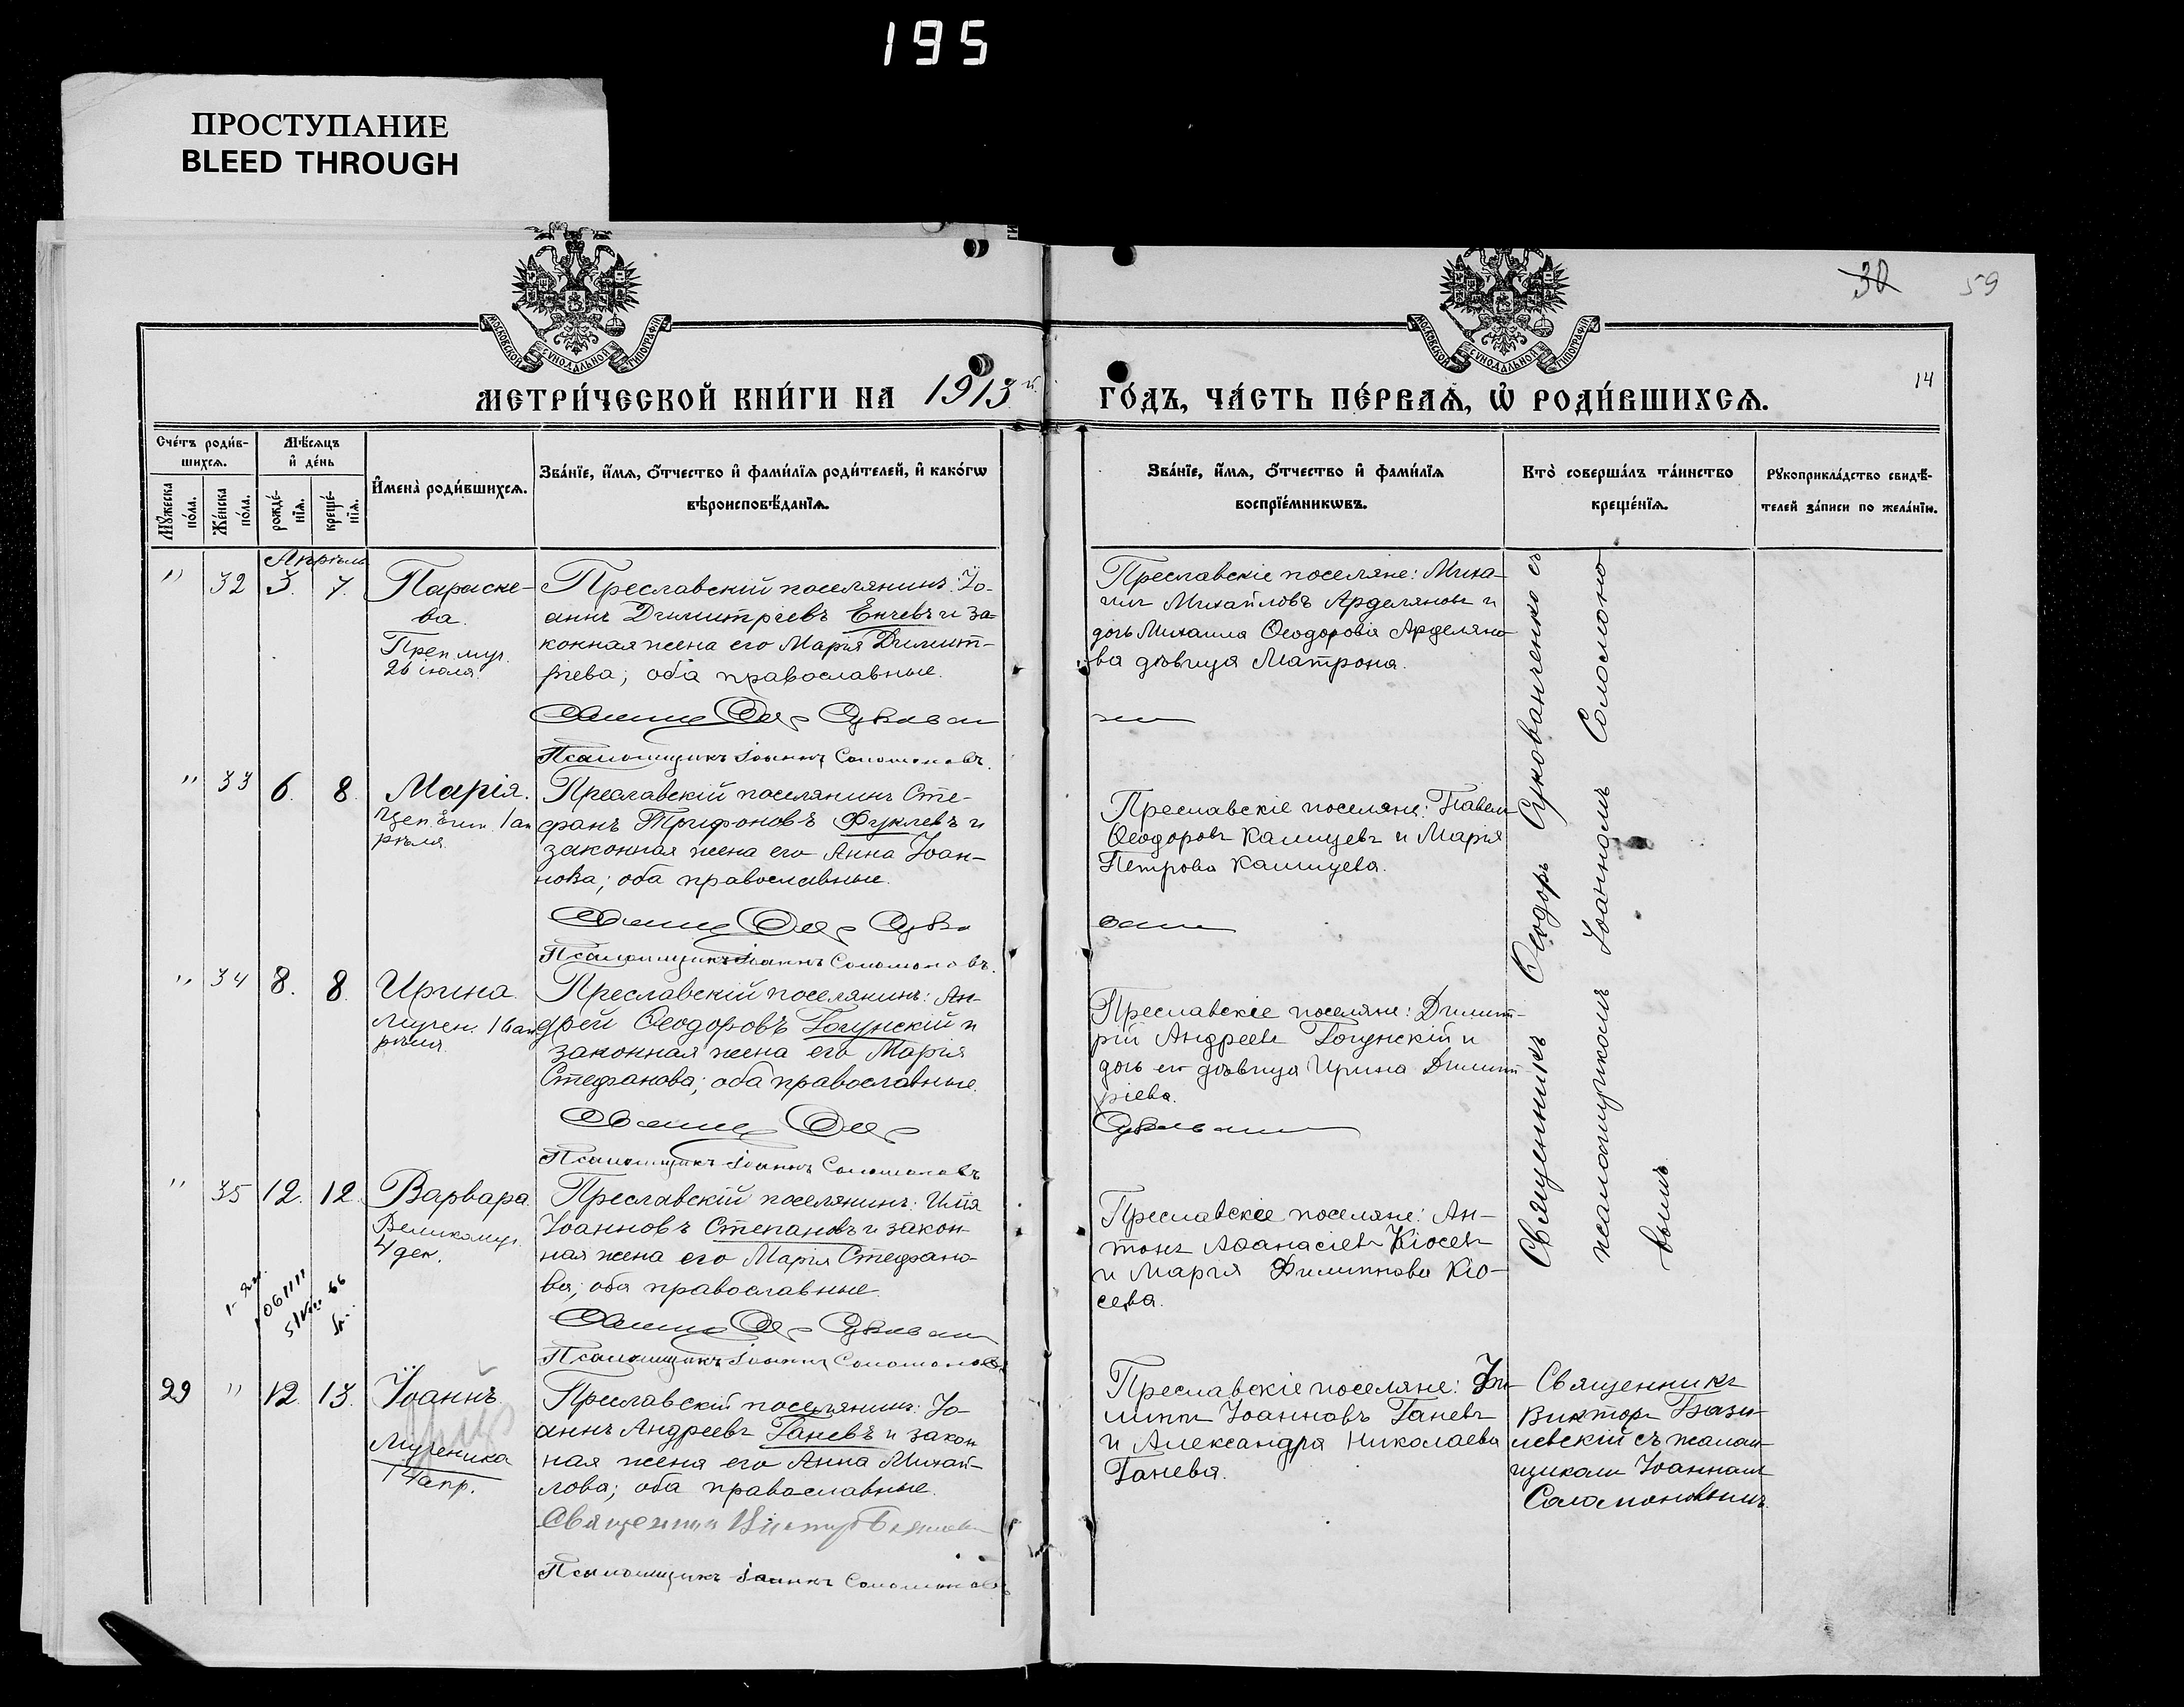 195
ПРОСТУПАНИЕ
BLEED THROUGH
30
59
14
МОСКОВСКОЙ СѴНОДАЛЬНОЙ ТИПОГРАФІИ
МОСКОВСКОЙ СѴНОДАЛЬНОЙ ТИПОГРАФІИ
МЕТРИ́ЧЕСКОЙ КНИ́ГИ НА 1913й
ГО́ДЪ, ЧА́СТЬ ПЕ́РВАѦ, Ѡ҆ РОДИ́ВШИХСѦ.
Сче́тъ роди́в-
шихсѧ.
Мѣ́сѧцъ
и҆ де́нь
Мꙋ́жеска
по́ла.
Же́нска
по́ла.
рожде́-
нїѧ.
креще́-
нїѧ.
И҆мена̀ роди́вшихсѧ.
Зва́нїе, и҆́мѧ, ѻ҆́тчество и҆ фами́лїѧ роди́телей, и҆ како́гѡ
вѣроисповѣ́данїѧ.
Зва́нїе, и҆́мѧ, ѻ҆́тчество и҆ фами́лїѧ
воспрїе́мникѡвъ.
Кто̀ соверша́лъ та́инство
креще́нїѧ.
Рꙋкоприкла́дство свидѣ́-
телей за́писи по жела́нїю.
Апрѣль
" 32 3. 7.
Параске-
ва.
Преп муч.
26 іюля
Преславскій поселянинъ: Іо-
аннъ Димитріевъ Енчевъ и за-
конная жена его Марія Димит-
ріева; оба православные.
Псаломщикъ Іоаннъ Соломоновъ.
Преславскіе поселяне: Миха-
илъ Михайловъ Арделяновъ и
дочь Михаила Ѳеодорова Арделяно-
ва дѣвица Матрона.
" 33 6. 8
Марія.
1 ап
рѣля.
Преславскій поселянинъ Сте-
фанъ Трифоновъ Фуклевъ и
законная жена его Анна Іоан-
нова; оба православные.
Псаломщикъ Іоаннъ Соломоновъ.
Преславскіе поселяне: Павелъ
Ѳеодоровъ Калицевъ и Марія
Петрова Калицева.
" 34 8. 8
Ирина
Мучен. 16 ап
рѣля.
Преславскій поселянинъ: Ан-
дрей Ѳеодоровъ Гогунскій и
законная жена его Марія
Стефанова; оба православные.
Псаломщикъ Іоаннъ Соломоновъ
Преславскіе поселяне: Димит-
рій Андреевъ Гогунскій и
дочь его дѣвица Ирина Димит-
ріева.
" 35 12. 12.
Варвара
Великомуч.
4 дек.
Преславскій поселянинъ: Илія
Іоанновъ Степановъ и закон-
ная жена его Марія Стефано-
ва; оба православные.
Псаломщикъ Іоаннъ Соломоновъ
Преславскіе поселяне: Ан-
тонъ Аѳанасіевъ Кіосевъ
и Марія Филиппова Кіо-
сева.
Священникъ Ѳеодоръ Сукованченко съ
псаломщикомъ Іоанномъ Соломоно-
вымъ
29 " 12. 13.
Іоаннъ
Мученика
14 апр.
Преславскій поселянинъ: Іо-
аннъ Андреевъ Ганевъ и закон
ная жена его Анна Михай-
лова; оба православные.
Псаломщикъ Іоаннъ Соломоновъ
Преславскіе поселяне: Фи-
липпъ Іоанновъ Ганевъ
и Александра Николаева
Ганева.
Священникъ
Викторъ Бази-
левскій съ псалом-
щикомъ Іоанномъ
Соломоновымъ.